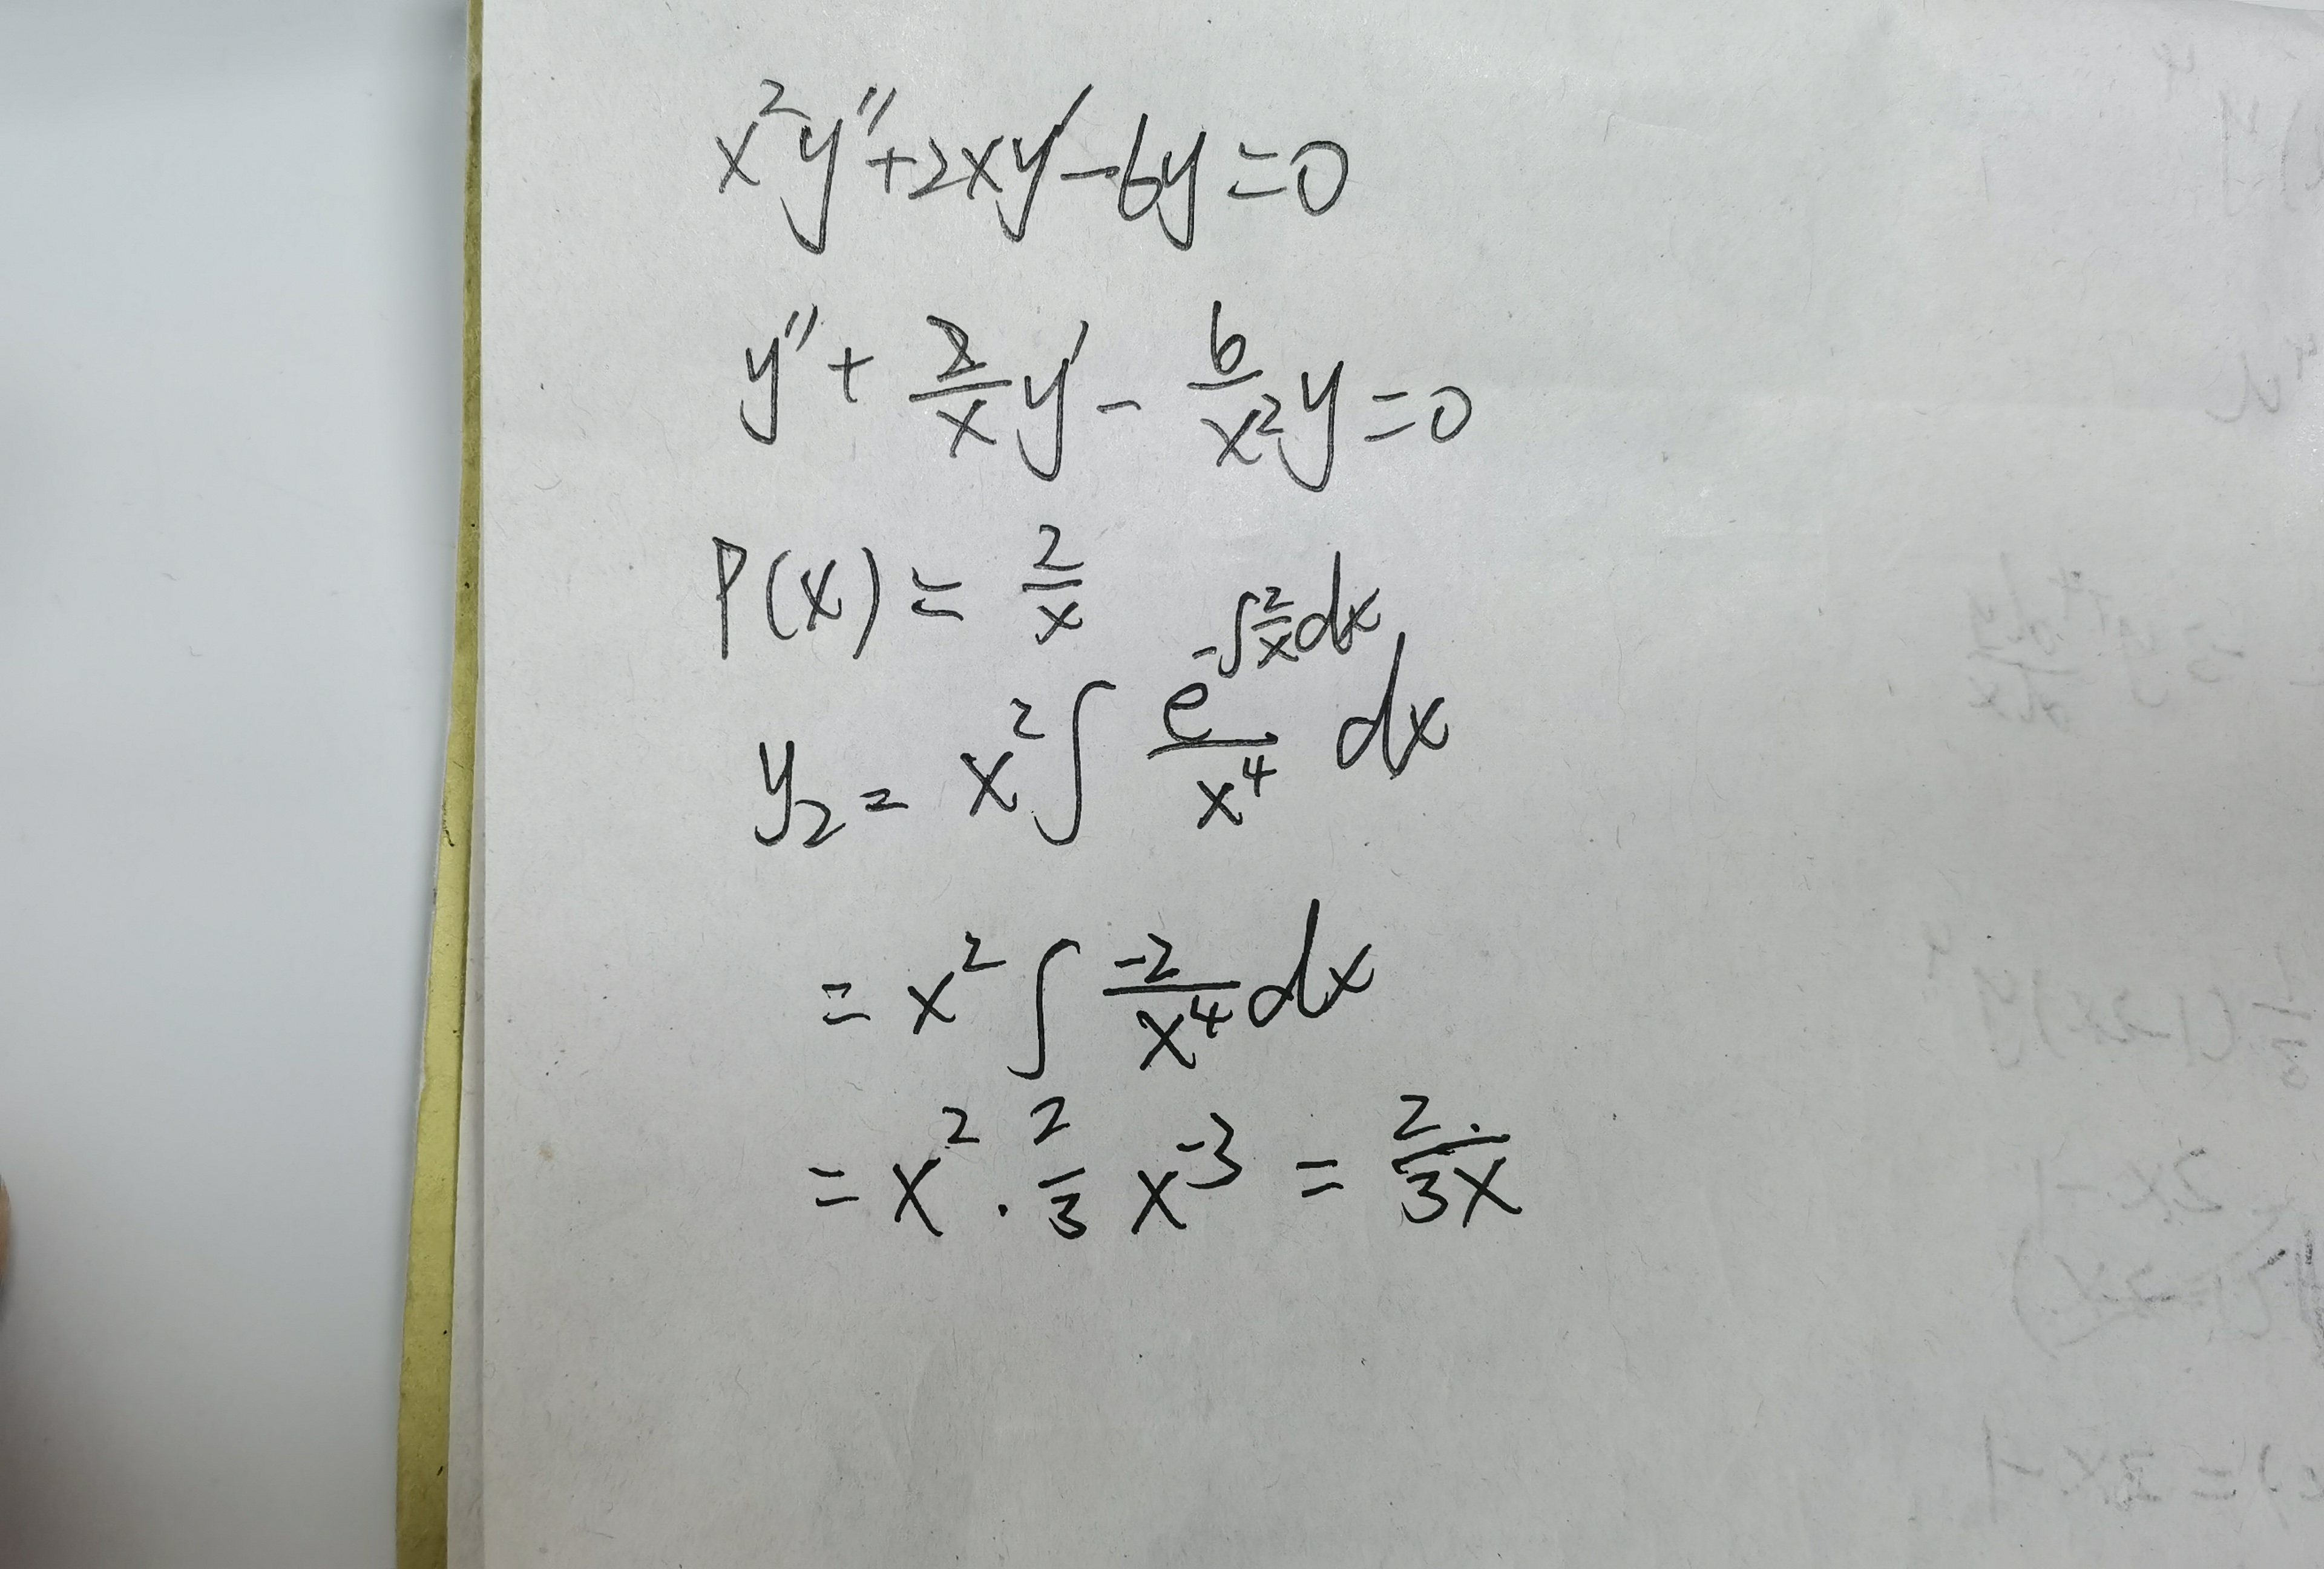 x²y''+2xy'-6y=0
y''+\frac{2}{x}y'-\frac{6}{x²}y=0
P(x)=\frac{2}{x}
y₂=x²∫\frac{e^{-∫\frac{2}{x}dx}}{x⁴}dx
=x²∫\frac{-2}{x⁴}dx
=x²·\frac{2}{3}x^{-3}=\frac{2}{3x}